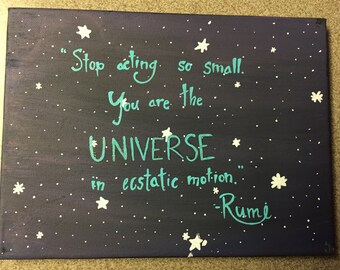 "Stop acting so small.
You are the
UNIVERSE
in ecstatic motion."
-Rumi